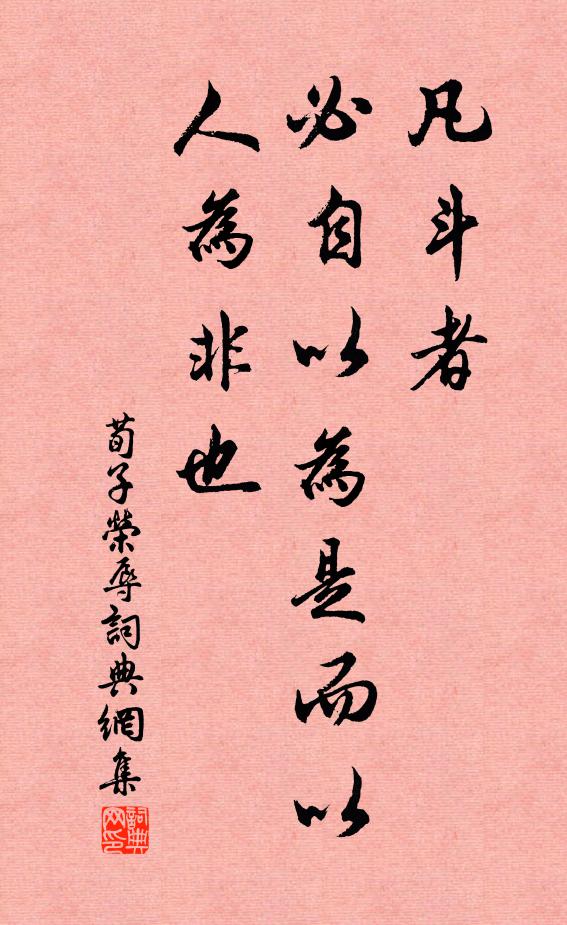 凡斗者
必自以為是而以
人為非也
荀子榮辱詞典網集
詞典网印